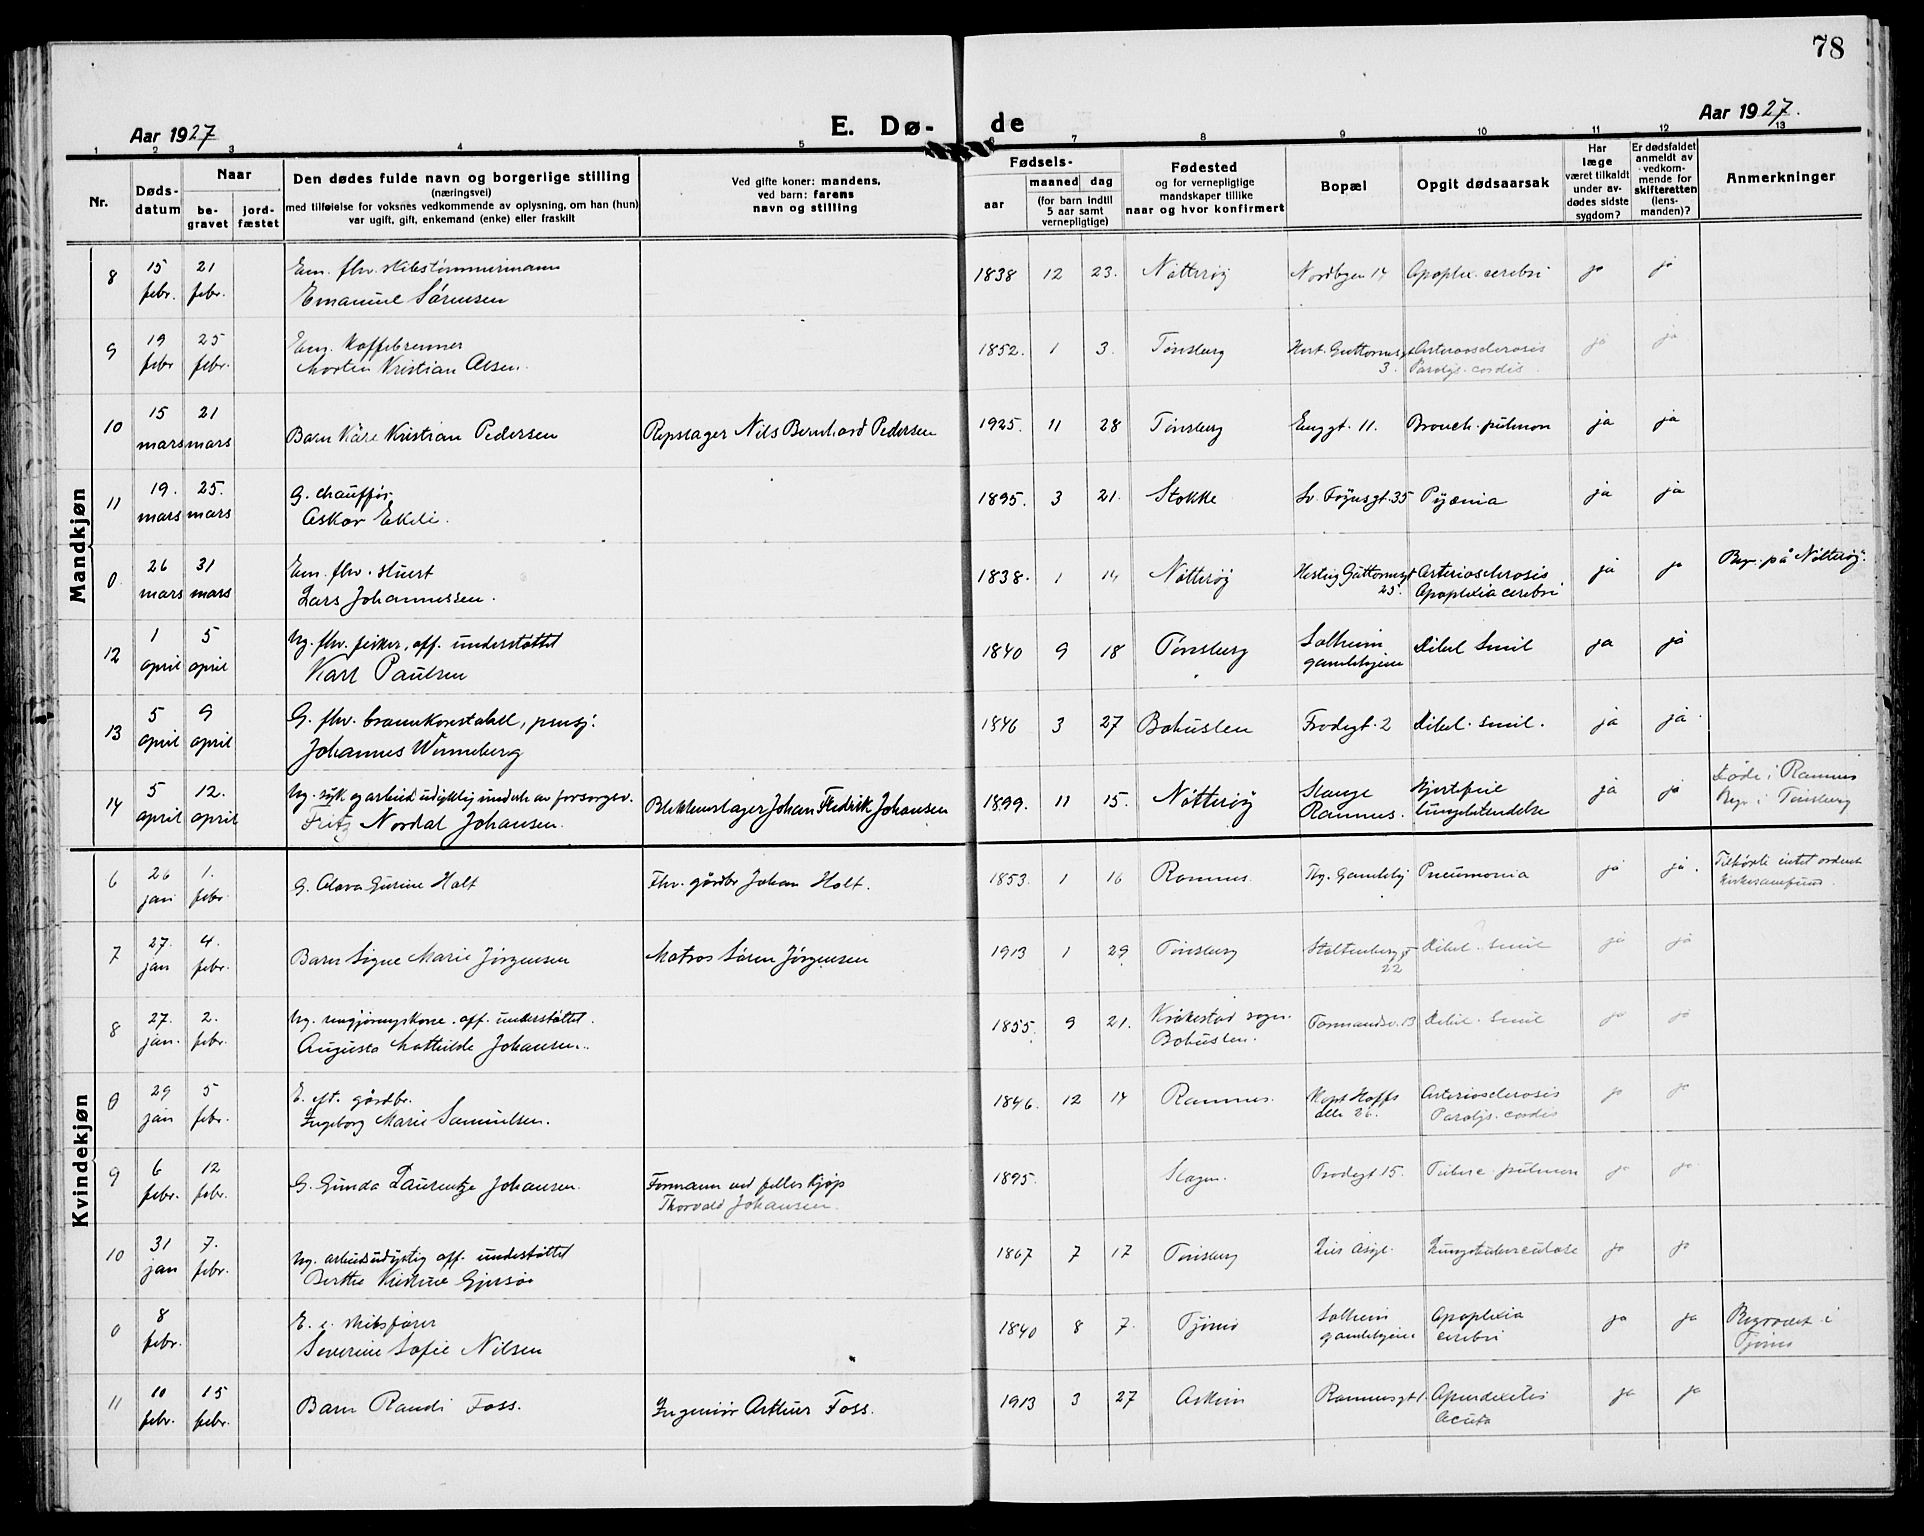 78
Aar 1927
E. Dø- de
Aar 1927.
1 2 3 4 5 6 7 8 9 10 11 12 13
Nr.
Døds-
datum
Naar
be-
gravet
jord-
fæstet
Den dødes fulde navn og borgerlige stilling
(næringsvei)
med tilføielse for voksnes vedkommende av oplysning, om han (hun)
var ugift, gift, enkemand (enke) eller fraskilt
Ved gifte koner: mandens,
ved barn: farens
navn og stilling
Fødsels-
aar
maaned
dag
(for barn indtil
5 aar samt
vernepligtige)
Fødested
og for vernepligtige
mandskaper tillike
naar og hvor konfirmert
Bopæl
Opgit dødsaarsak
Har
læge
været tilkaldt
under av-
dødes sidste
sygdom?
Er dødsfaldet
anmeldt av
vedkom-
mende for
skifteretten
(lens-
manden)?
Anmerkninger
Mandkjøn
8 15 febr. 21 febr. Em. fhv. skibstømmermann
Emanuel Sørensen 1838 12 23. Nøtterøy Nordbyen 14 Apoplex. cerebri ja ja
9 19 febr 25 febr. Em. Kaffebrenner
Morten Kristian Olsen. 1852. 1 3. Tønsberg Hert. Guttormsgt 3. Arterosclerosis
Paralys. cordis. ja ja
10 15 mars 21 mars Barn Kåre Kristian Pedersen Repslager Nils Bernhard Pedersen 1925. 11 28 Tønsberg Enggt. 11. Bronch. pulmon ja ja
11 19. mars 25. mars G. chauffør.
Oskar Ekeli. 1895. 3 21. Stokke Sv. Føynsgt. 35 Pyæmia ja ja
0 26 mars 31 mars Em. fhv. stuert
Lars Johannessen. 1838. 1 14 Nøtterøy Hertug Guttormsgt 25. Arteriosclerosis
Apoplexia cerebri ja ja Begr. på Nøtterøy.
12 1 april 5 april Ug. fhv. fisker, off. understøttet
Karl Paulsen 1840 9 18 Tønsberg Solheim
gamlehjem Sibel Senil ja ja
13 5 april 9 april G. fhv. brannkonstabel, pensj.
Johannes Winneberg 1846 3 27 Bohuslen Frodegt. 2 Sibel. senil. ja ja
14 5 april 12. april Ug. syk og arbeidsudyktig underh. av forsorgsv.
Fritz Nordal Johansen. Blikkenslager Johan Fredrik Johansen 1899. 11 15. Nøtterøy Slange
Ramnes. Hjertefeil
lungebetendelse ja ja Døde i Ramnes
Begr i Tønsberg
Kvindekjøn
6 26 jan 1. febr. G. Olava Gurine Holt Fhv. gårdbr Johan Holt. 1853. 1 16 Ramnes. Tbg. Gamlehj Pneumonia ja ja. Tilhørte intet ordnet
kirkesamfund.
7 27. jan 4. febr. Barn Signe Marie Jørgensen Matros Søren Jørgensen 1913 1 29 Tønsberg Stoltenberggt 22 Sibel. Senil ja ja
8 27. jan. 2. febr. Ug. rengjøringskone. off. understøttet.
Augusta Mathilde Johansen. 1855. 9 21. Krokestad sogn.
Bohuslen. Formandsv. 13 Sibel. Senil ja ja
0 29 jan 5 febr. E. eft. gårdbr.
Ingeborg Marie Samuelsen. 1846. 12 14 Ramnes. Kapt Hoffs
alle 26. Arteriosclerosis
Paralys. cordis ja ja
9 6 febr. 12 febr. G. Gunda Laurentze Johansen. Formann ved felleskjøp
Thorvald Johansen. 1895. Slagen. Frodegt 15. Tuberc. pulmon ja ja
10 31 jan 7. febr. Ug. arbeidsudyktig off. understøttet
Berthe Kristine Gjersøe 1867 7 17 Tønsberg Lies Asyl. Lungetuberculose ja ja
0 8 febr. E. e. skibsfører
Severine Sofie Nilsen 1840 8 7. Tjømø Solheim
gamlehjem Apoplexia
cerebri ja ja Begravet i
Tjømø
11 10 febr. 15 febr. Barn Randi Foss. Ingeniør Arthur Foss. 1913 3 27 Askim Ramnesgt 1. Apendicitis
Acuta ja ja